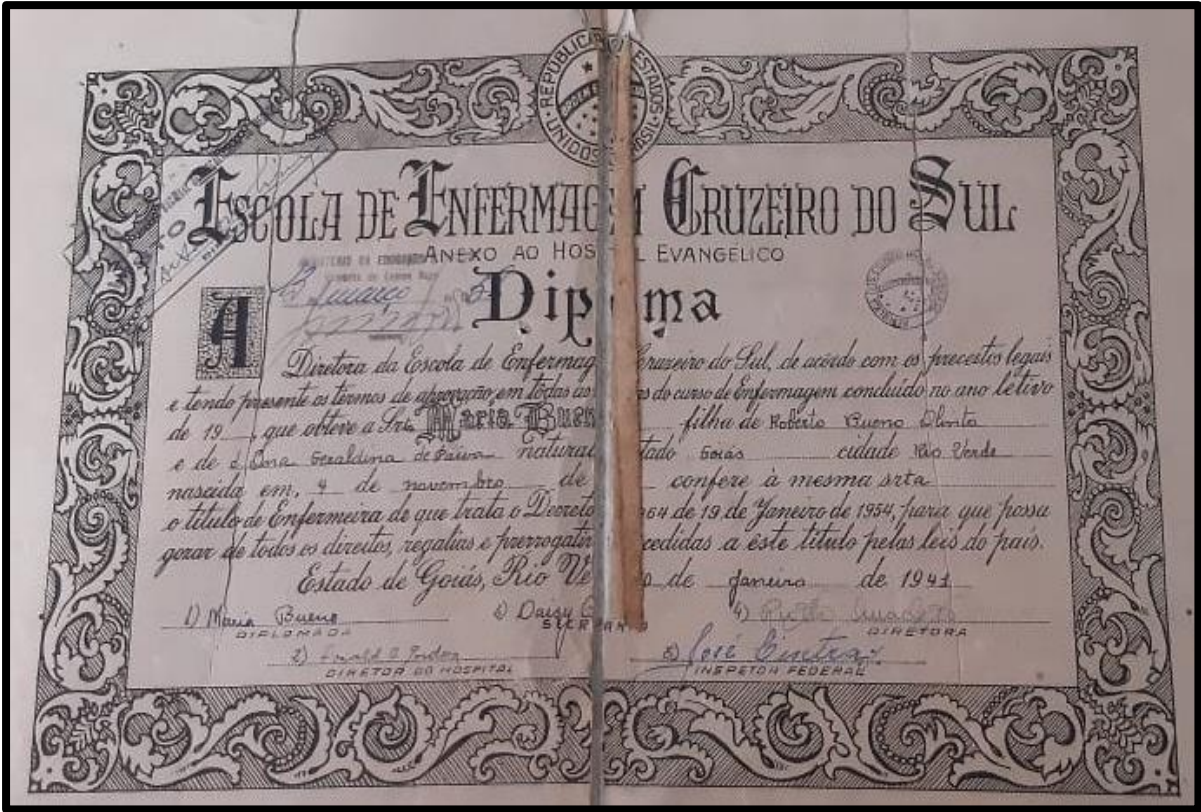 REPUBLICA ESTADOS UNIDOS
ESCOLA DE ENFERMAGEM CRUZEIRO DO SUL
ANEXO AO HOS L EVANGELICO
Dip ma
A Diretora da Escola de Enfermag Cruzeiro do Sul, de acôrdo com os preceitos legais
e tendo presente os têrmos de aprovação em tôdas as as do curso de Enfermagem concluído no ano letivo
de 19 , que obteve a Srta Maria Buen filha de Roberto Bueno
e de d. Ana Geraldina de Paiva natural tado Goiás cidade Rio Verde
nascida em, 4 de novembro de confere à mesma srta
o título de Enfermeira de que trata o Decreto 64 de 19 de Janeiro de 1954, para que possa
gozar de todos os direitos, regalias e prerrogativ cedidas a êste título pelas leis do país.
Estado de Goiás, Rio Ve de Janeiro de 1941
1) Maria Bueno Daisy 4) Ruth
DIPLOMADA SECR DIRETORA
2) José Cintra
DIRETOR DO HOSPITAL INSPETOR FEDERAL